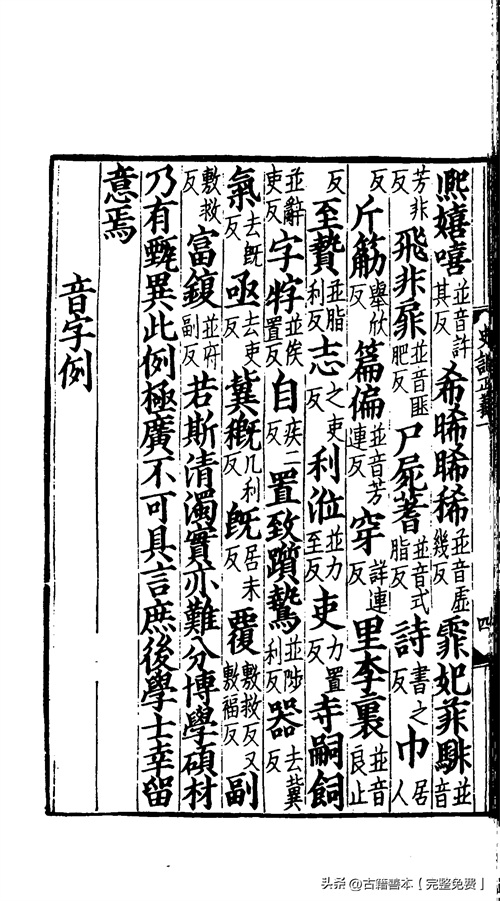 熙嬉嘻並音許其反希晞晞稀並音虛幾反霏妃菲騑並音
芳非反飛非扉並音匪肥反尸屍蓍並音式脂反詩書之反巾居人
反斤筋舉欣反篇偏並音芳連反穿詳連反里李裏並音良止
反至贄並脂利反志之吏反利涖並力至反吏力置反寺嗣飼
並辭吏反字牸並俟置反自疾二反置致躓鷙並陟利反器去冀反
氣去既反亟去吏反冀穊几利反既居未反覆敷救反又敷福反副
敷救反富鍑並府副反若斯清濁實亦難分博學碩材
乃有甄異此例極廣不可具言庶後學士幸留
意焉
音字例
四
头条 @古籍善本【完整免费】